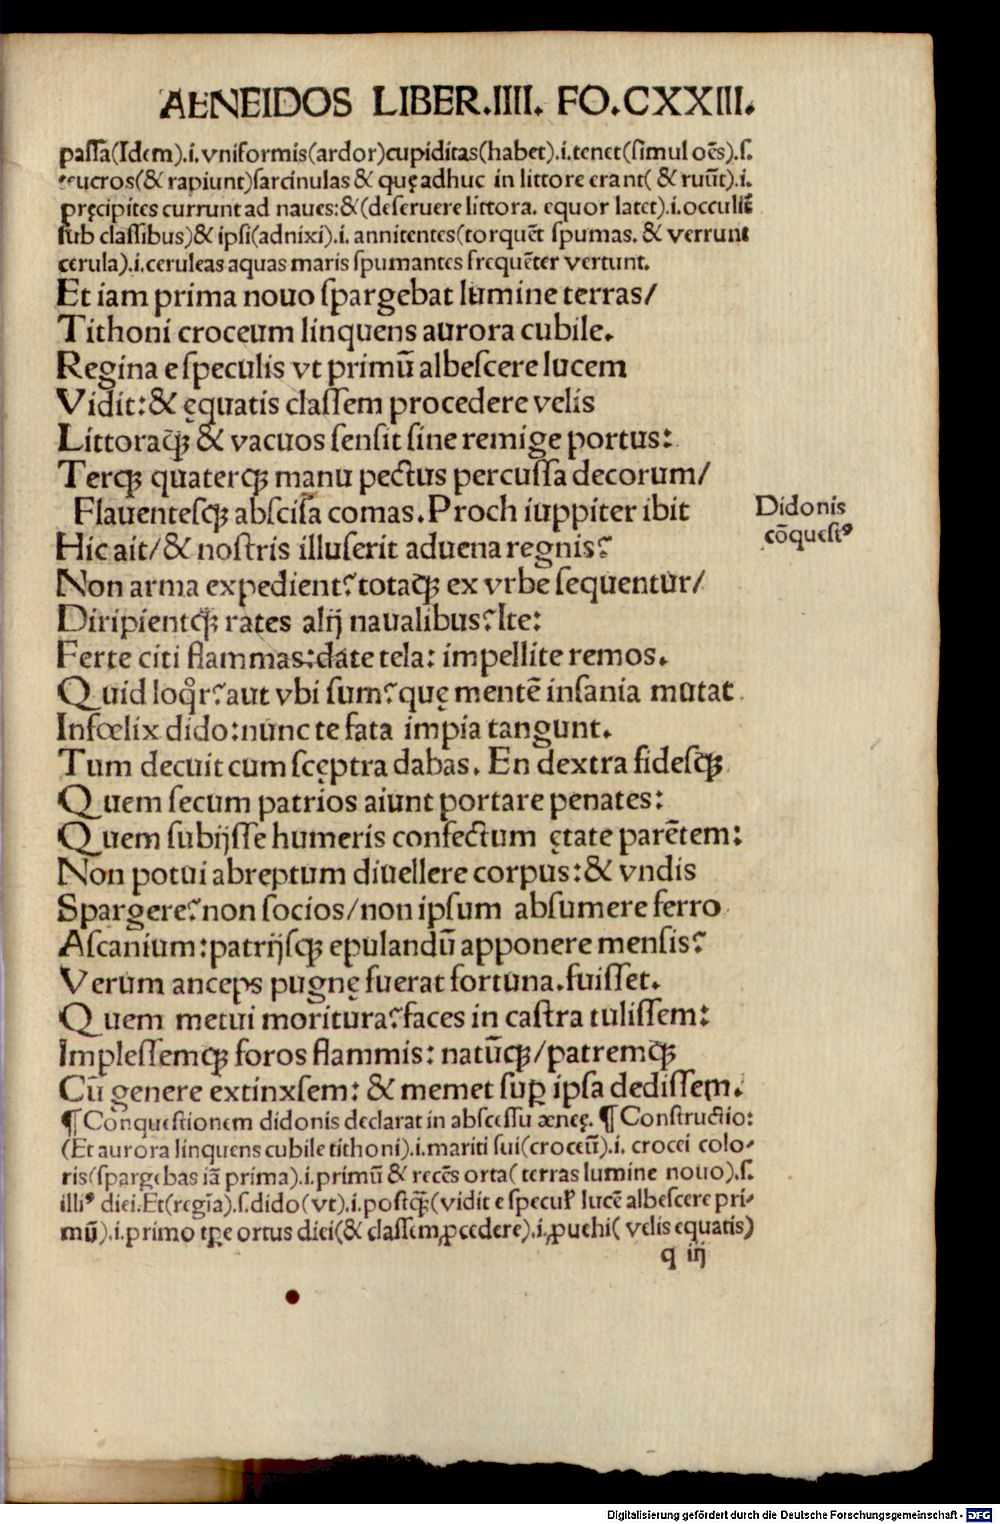 AENEIDOS LIBER.IIII. FO.CXXIII.
paſſa(Idem).i.vniformis(ardor)cupiditas(habet).i.tenet(ſimul oēs).ſ.
teucros(& rapiunt)ſarcinulas & quę adhuc in littore erant( & ruūt).i.
pręcipites currunt ad naues:&(deſeruere littora. equor latet).i.occulit̄
ſub claſſibus)& ipſi(adnixi).i. annitentes(torquēt ſpumas. & verrunt
cerula).i.ceruleas aquas maris ſpumantes frequēter vertunt.
Et iam prima nouo ſpargebat lumine terras/
Tithoni croceum linquens aurora cubile.
Regina e ſpeculis vt primū albeſcere lucem
Vidit:& ęquatis claſſem procedere velis
Littoraq̄ꝫ & vacuos ſenſit ſine remige portus:
Terqꝫ quaterqꝫ manu pectus percuſſa decorum/
Flauenteſqꝫ abſciſa comas.Proch iuppiter ibit
Hic ait/& noſtris illuſerit aduena regnis?
Non arma expedient?totaqꝫ ex vrbe ſequentur/
Diripientqꝫ rates alij naualibus?Ite:
Ferte citi flammas:date tela: impellite remos.
Quid loqr̄?aut vbi ſum?quę mentē inſania mutat
Infœlix dido:nunc te fata impia tangunt.
Tum decuit cum ſcęptra dabas. En dextra fideſqꝫ
Quem ſecum patrios aiunt portare penates:
Quem ſubijſſe humeris confectum ętate parētem:
Non potui abreptum diuellere corpus:& vndis
Spargere?non ſocios/non ipſum abſumere ferro
Aſcanium:patrijſqꝫ epulandū apponere menſis?
Verum anceps pugnę fuerat fortuna.fuiſſet.
Quem metui moritura?faces in caſtra tuliſſem:
Impleſſemqꝫ foros flammis: natūqꝫ/patremqꝫ
Cū genere extinxſem: & memet ſuꝑ ipſa dediſſem.
¶ Conqueſtionem didonis declarat in abſceſſu æneę. ¶ Conſtructio:
(Et aurora linquens cubile tithoni).i.mariti ſui(croceū).i. crocei colo-
ris(ſpargebas iā prima).i.primū & recēs orta( terras lumine nouo).ſ.
illiꝰ diei.Et(regīa).ſ.dido(vt).i.poſtq̄ꝫ(vidit e ſpecul̕ lucē albeſcere pri-
mū).i.primo tꝑe ortus diei(& claſſem ꝓcedere).i.ꝓuehi( velis equatis)
q iij
Didonis
cōqueſtꝰ
Digitalisierung gefördert durch die Deutsche Forschungsgemeinschaft - DFG